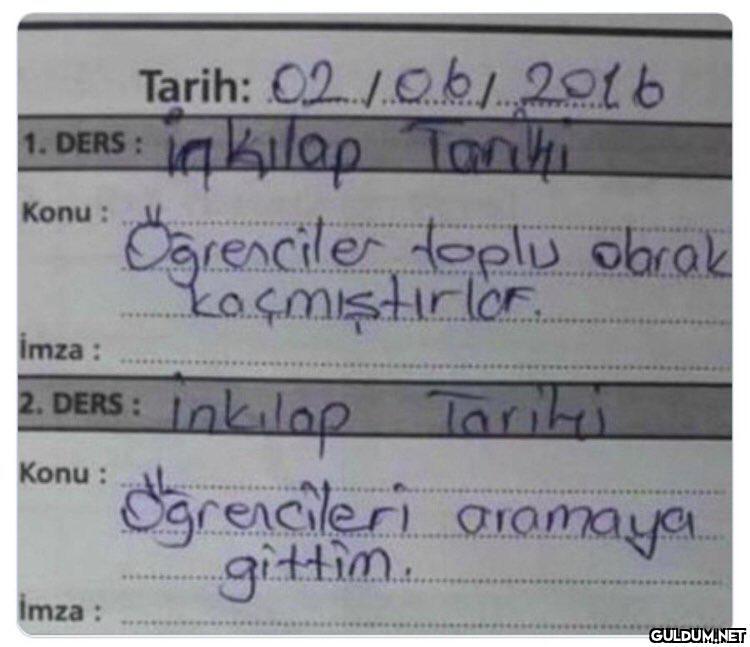 Tarih: 02/06/2016
1. DERS : İnkılap Tarihi
Konu :
Öğrenciler toplu olarak
kaçmıştırlar.
İmza :
2. DERS : İnkılap Tarihi
Konu :
Öğrencileri aramaya
gittim.
İmza :
GULDUM.NET